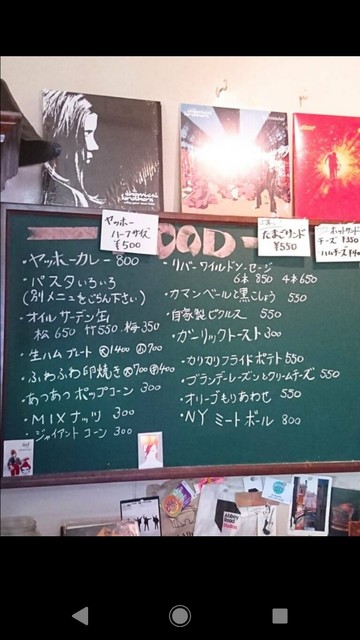 the chemical brothers
ヤッホー
ハーフサイズ
¥500
たまごサンド
¥550
ホットサンド
チーズ ¥350
FOOD
・ヤッホーカレー 800
・パスタいろいろ
(別メニューをごらん下さい)
・オイルサーデン缶
松650 竹550 梅350
・生ハムプレート 大1400 小700
・ふわふわ卵焼き 大700 中400
・あつあつポップコーン 300
・MIXナッツ 300
・ジャイアントコーン 300
・リバーワイルドソーセージ
6本 850 4本 650
・カマンベールと黒こしょう 550
・自家製ピクルス 550
・ガーリックトースト 300
・カリカリフライドポテト 550
・ブランデーレーズンとクリームチーズ 550
・オリーブもりあわせ 550
・NYミートボール 800
Abbey
Road
Studios